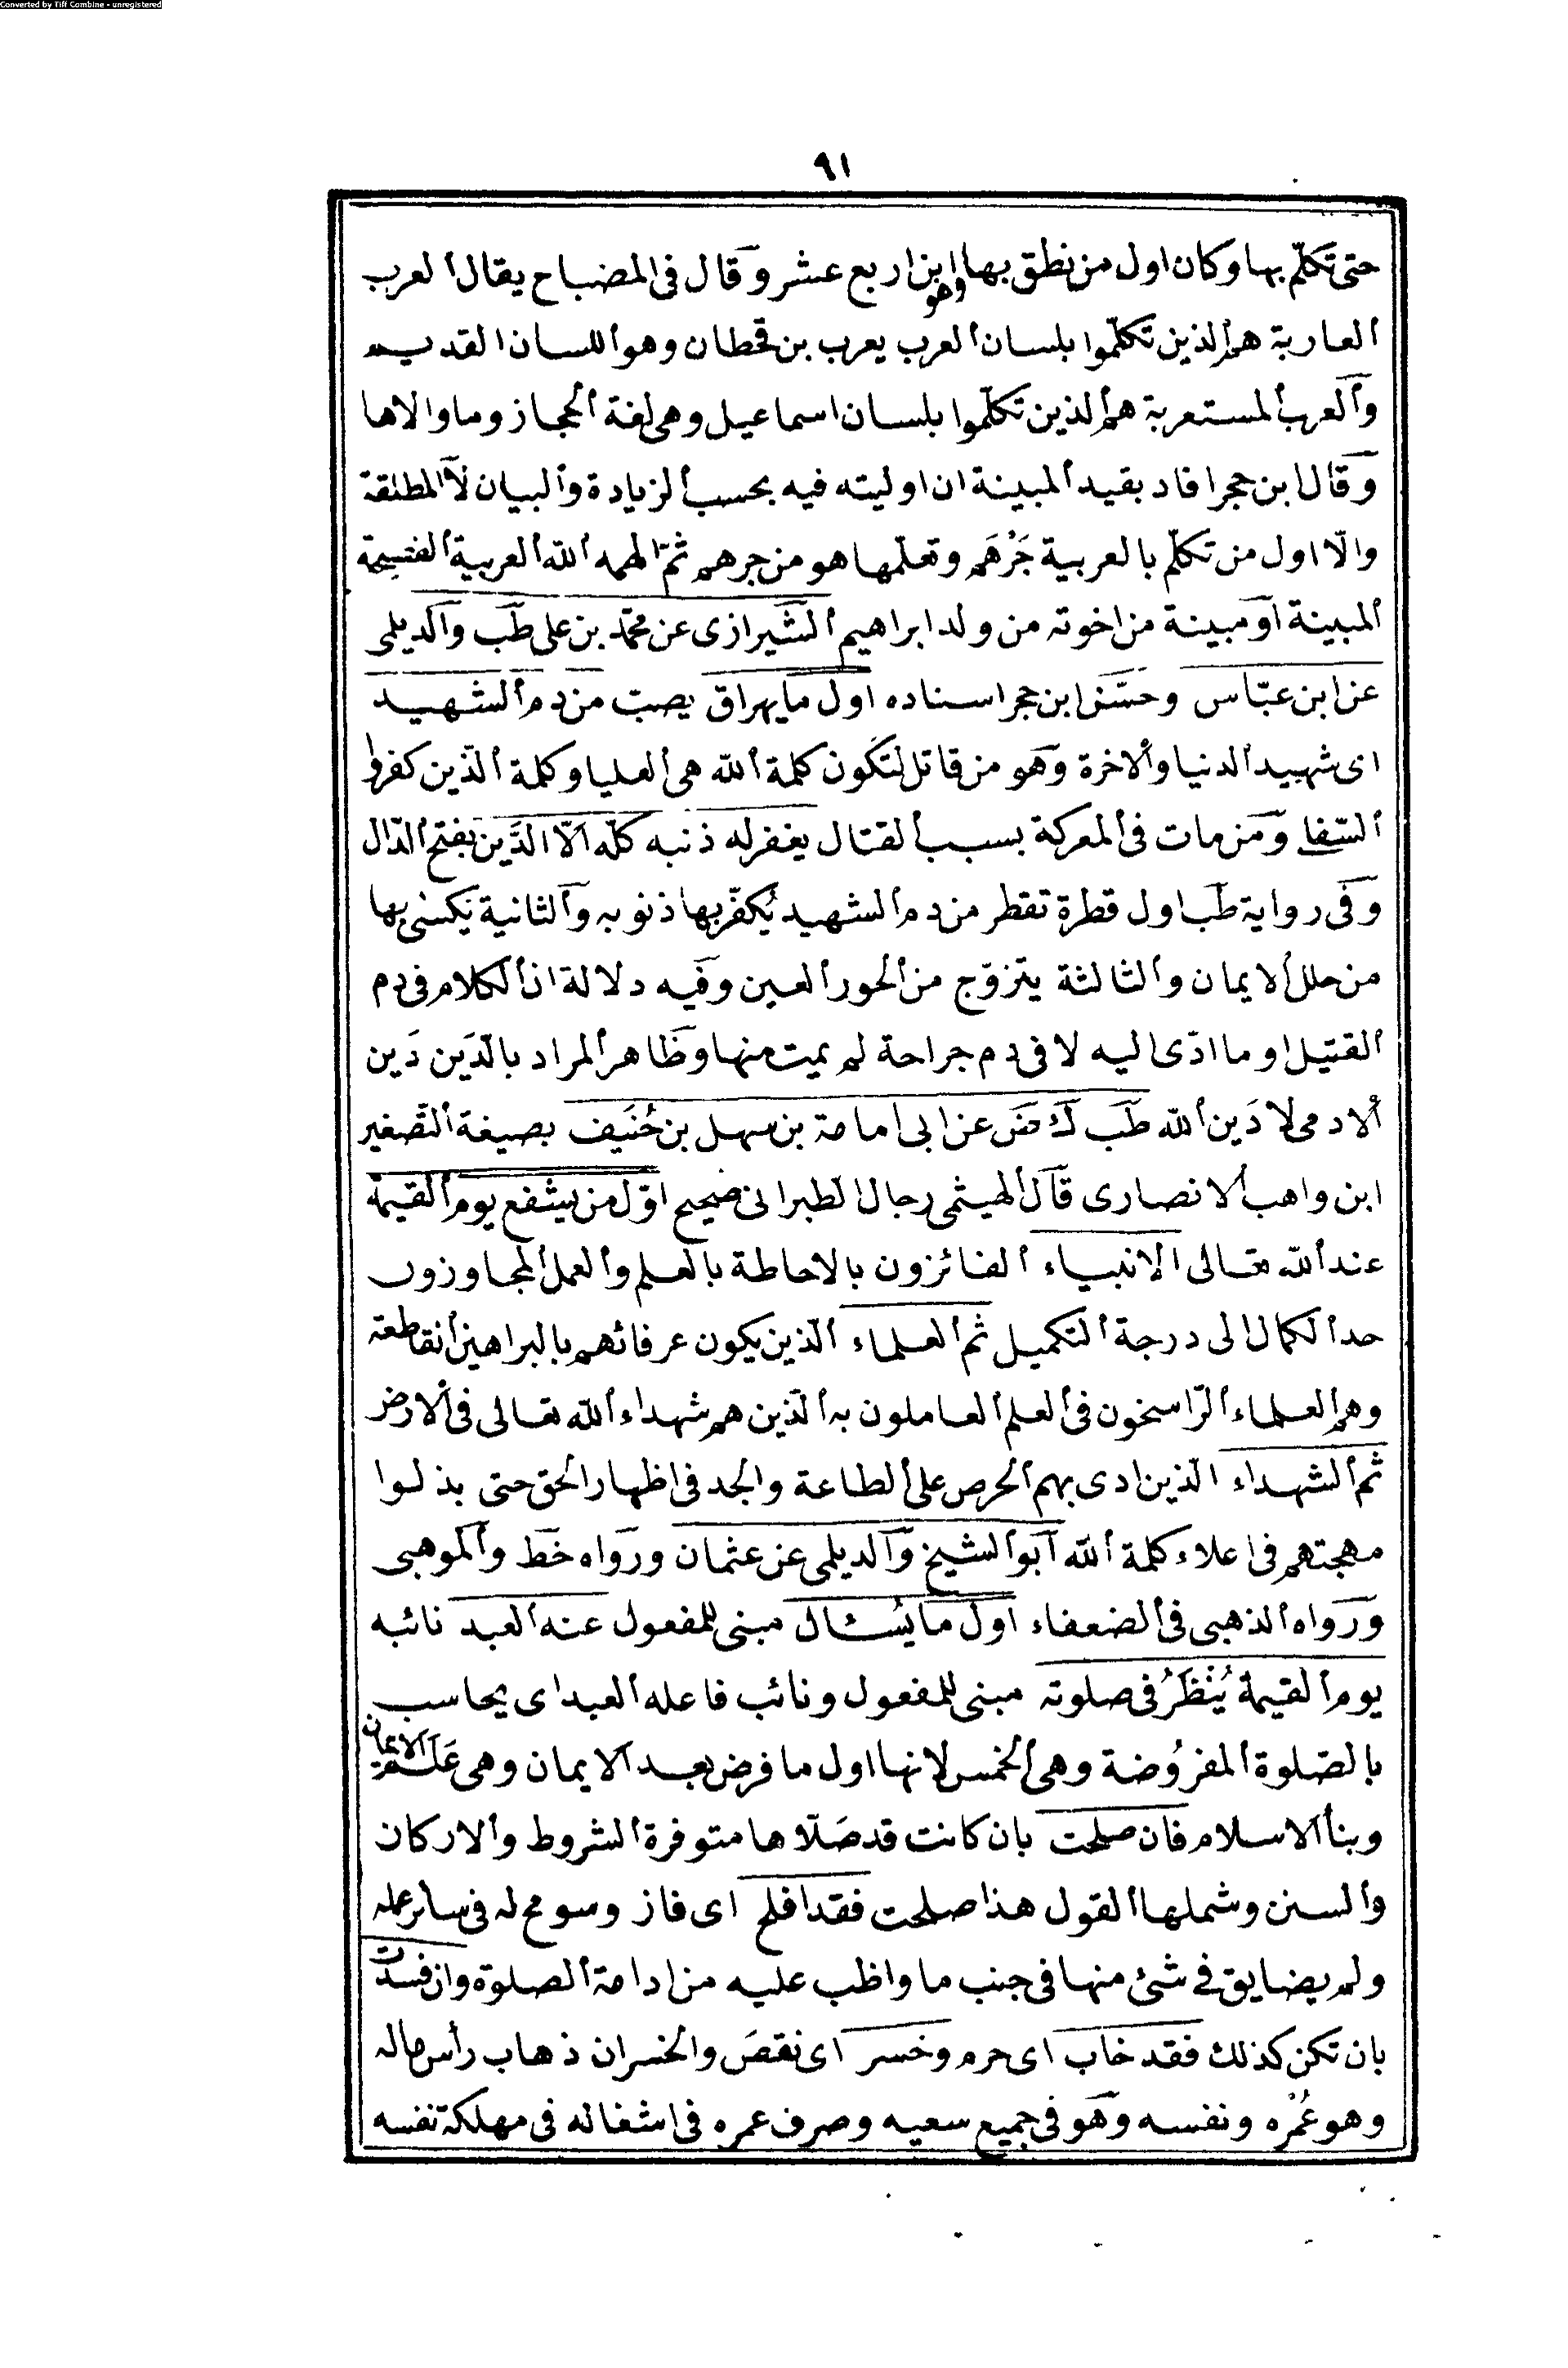 Converted by Tiff Combine - unregistered
٩١
حتى تكلّم بها وكان اول من نطق بها وهو ابن اربع عشر وقال فى المصباح يقال العرب
العاربة هم الذين تكلّموا بلسان العرب يعرب بن قحطان وهو اللسان القديم
والعرب المستعربة هم الذين تكلّموا بلسان اسماعيل وهى لغة الحجاز وما والاها
وقال ابن حجر افاد بقيد المبينة ان اوليته فيه بحسب الزيادة والبيان لا المطلقة
والّا اول من تكلّم بالعربية جَرْهَم وتعلّمها هو من جرهم ثمّ الهمه الله العربية الفصيحة
المبينة او مبينة من اخوته من ولد ابراهيم الشيرازى عن محمّد بن على طب والديلمى
عن ابن عبّاس وحسّن ابن حجر اسناده اول ما يهراق يصبّ من دم الشهيد
اى شهيد الدنيا والاخرة وهو من قاتل لتكون كلمة الله هى العليا وكلمة الّذين كفروا
السّفلى ومن مات فى المعركة بسبب القتال يغفر له ذنبه كلّه الّا الدَّين بفتح الدّال
وفى رواية طب اول قطرة تقطر من دم الشهيد يُكفّر بها ذنوبه والثانية يكسى بها
من حلل الايمان والثالثة يتزوّج من الحور العين وفيه دلالة ان الكلام فى دم
القتيل او ما ادّى اليه لا فى دم جراحة لم يمت منها وظاهر المراد بالدّين دَين
الادمى لا دَين الله طب ك ض عن ابى امامة بن سهل بن حُنَيف بصيغة التّصغير
ابن واهب الانصارى قال الهيثمى رجال الطبرانى صحيح اوّل من يشفع يوم القيمة
عند الله تعالى الانبياء الفائزون بالاحاطة بالعلم والعمل المجاوزون
حد الكمال الى درجة التكميل ثم العلماء الذين يكون عرفانهم بالبراهين القاطعة
وهم العلماء الرّاسخون فى العلم العاملون به الّذين هم شهداء الله تعالى فى الارض
ثم الشهداء الّذين ادى بهم الحرص على الطاعة والجد فى اظهار الحق حتى بذلوا
مهجتهم فى اعلاء كلمة الله ابو الشيخ والديلمى عن عثمان ورواه خط والموهبى
ورواه الذهبى فى الضعفاء اول ما يُسئال مبنى للمفعول عنه العبد نائبه
يوم القيمة يُنْظَرُ فى صلوته مبنى للمفعول ونائب فاعله العبد اى يحاسب
بالصّلوة المفرُوضة وهى الخمس لانها اول ما فرض بعد الايمان وهى عَلَم الايمان
وبنأ الاسلام فان صلحت بان كانت قد صَلّاها متوفرة الشروط والاركان
والسنن وشملها القول هذا صلحت فقد افلح اى فاز وسومح له فى سائر عمله
ولم يضايق فى شئ منها فى جنب ما واظب عليه من ادامة الصلوة وان فسدت
بان تكن كذلك فقد خاب اى حرم وخسر اى نقصَ والخسران ذهاب رأس ماله
وهو عُمُره ونفسه وهو فى جميع سعيه وصرف عمره فى اشغاله فى مهلكة نفسه